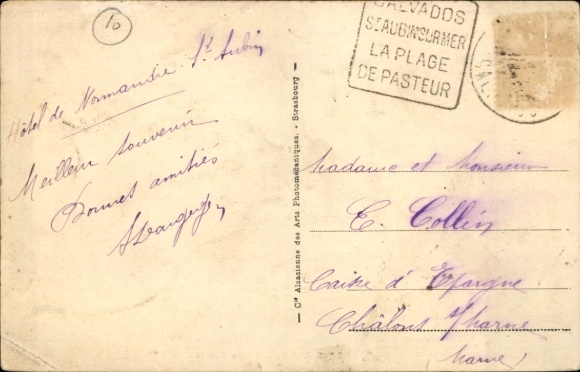 10
Hôtel de Normandie St Aubin
Meilleur souvenir
Bonnes amitiés
CALVADOS
ST AUBIN SUR MER
LA PLAGE
DE PASTEUR
— Cie Alsacienne des Arts Photomécaniques. - Strasbourg —
Madame et Monsieur
E. Collin
Caisse d'Epargne
Châlons s/ Marne
(Marne)